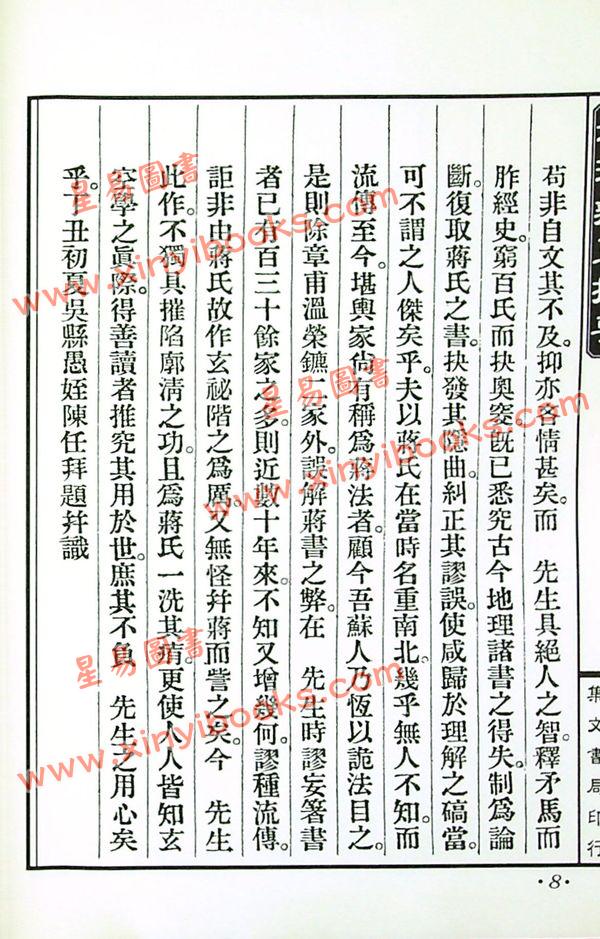 苟非自文其不及。抑亦吝情甚矣。而　先生具絕人之智。釋矛馬而
胙經史。窮百氏而抉奧窔。旣已悉究古今地理諸書之得失。制爲論
斷。復取蔣氏之書。抉發其隱曲。糾正其謬誤。使咸歸於理解之碻當。
可不謂之人傑矣乎。夫以蔣氏在當時名重南北。幾乎無人不知。而
流傳至今。堪輿家尙有稱爲蔣法者。顧今吾蘇人乃恆以詭法目之。
是則除章甫溫榮鑣二家外。誤解蔣書之弊。在　先生時謬妄箸書
者已有百三十餘家之多。則近數十年來不知又增幾何。謬種流傳。
詎非由蔣氏故作玄祕階之爲厲。又無怪幷蔣而訾之矣。今　先生
此作。不獨具摧陷廓淸之功。且爲蔣氏一洗其痏。更使人人皆知玄
空學之眞際。得善讀者推究其用於世。庶其不負　先生之用心矣
乎。丁丑初夏吳縣愚姪陳任拜題幷識
集文書局印行
·8·
星易圖書
www.xinyibooks.com
星易圖書
www.xinyibooks.com
星易圖書
www.xinyibooks.com